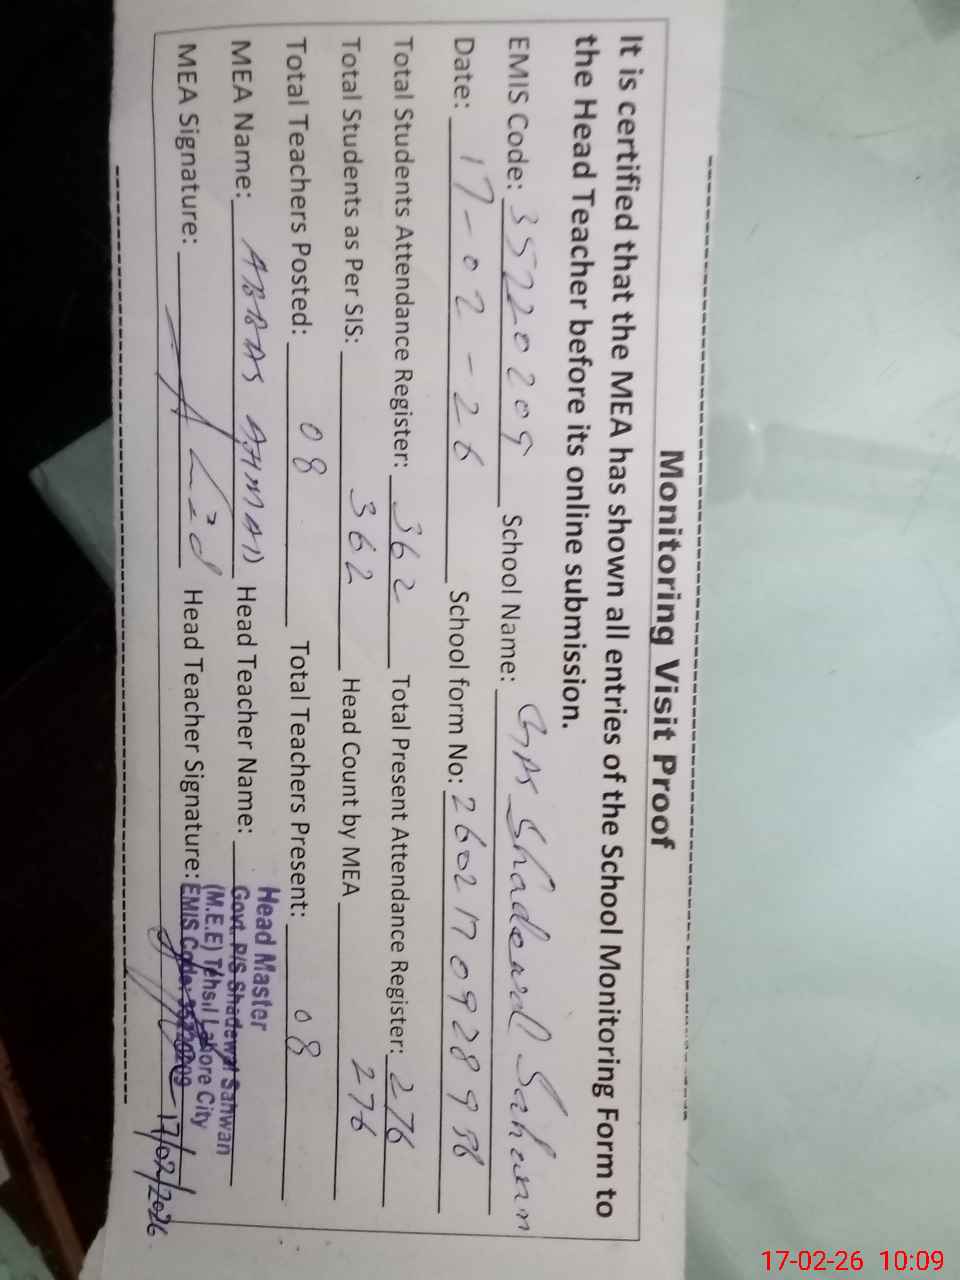 Monitoring Visit Proof
It is certified that the MEA has shown all entries of the School Monitoring Form to
the Head Teacher before its online submission.
EMIS Code: 35220209 School Name: GPS Shadewal Sahwan
Date: 17-02-26 School form No: 260217092899
Total Students Attendance Register: 362 Total Present Attendance Register: 276
Total Students as Per SIS: 362 Head Count by MEA 276
Total Teachers Posted: 08 Total Teachers Present: 08
MEA Name: ABBAS AHMAD Head Teacher Name:
Head Master
Govt. P/S Shadewal Sahwan
(M.E.E) Tehsil Lahore City
EMIS Code: 35220209
MEA Signature: Head Teacher Signature: 17/02/2026
17-02-26 10:09